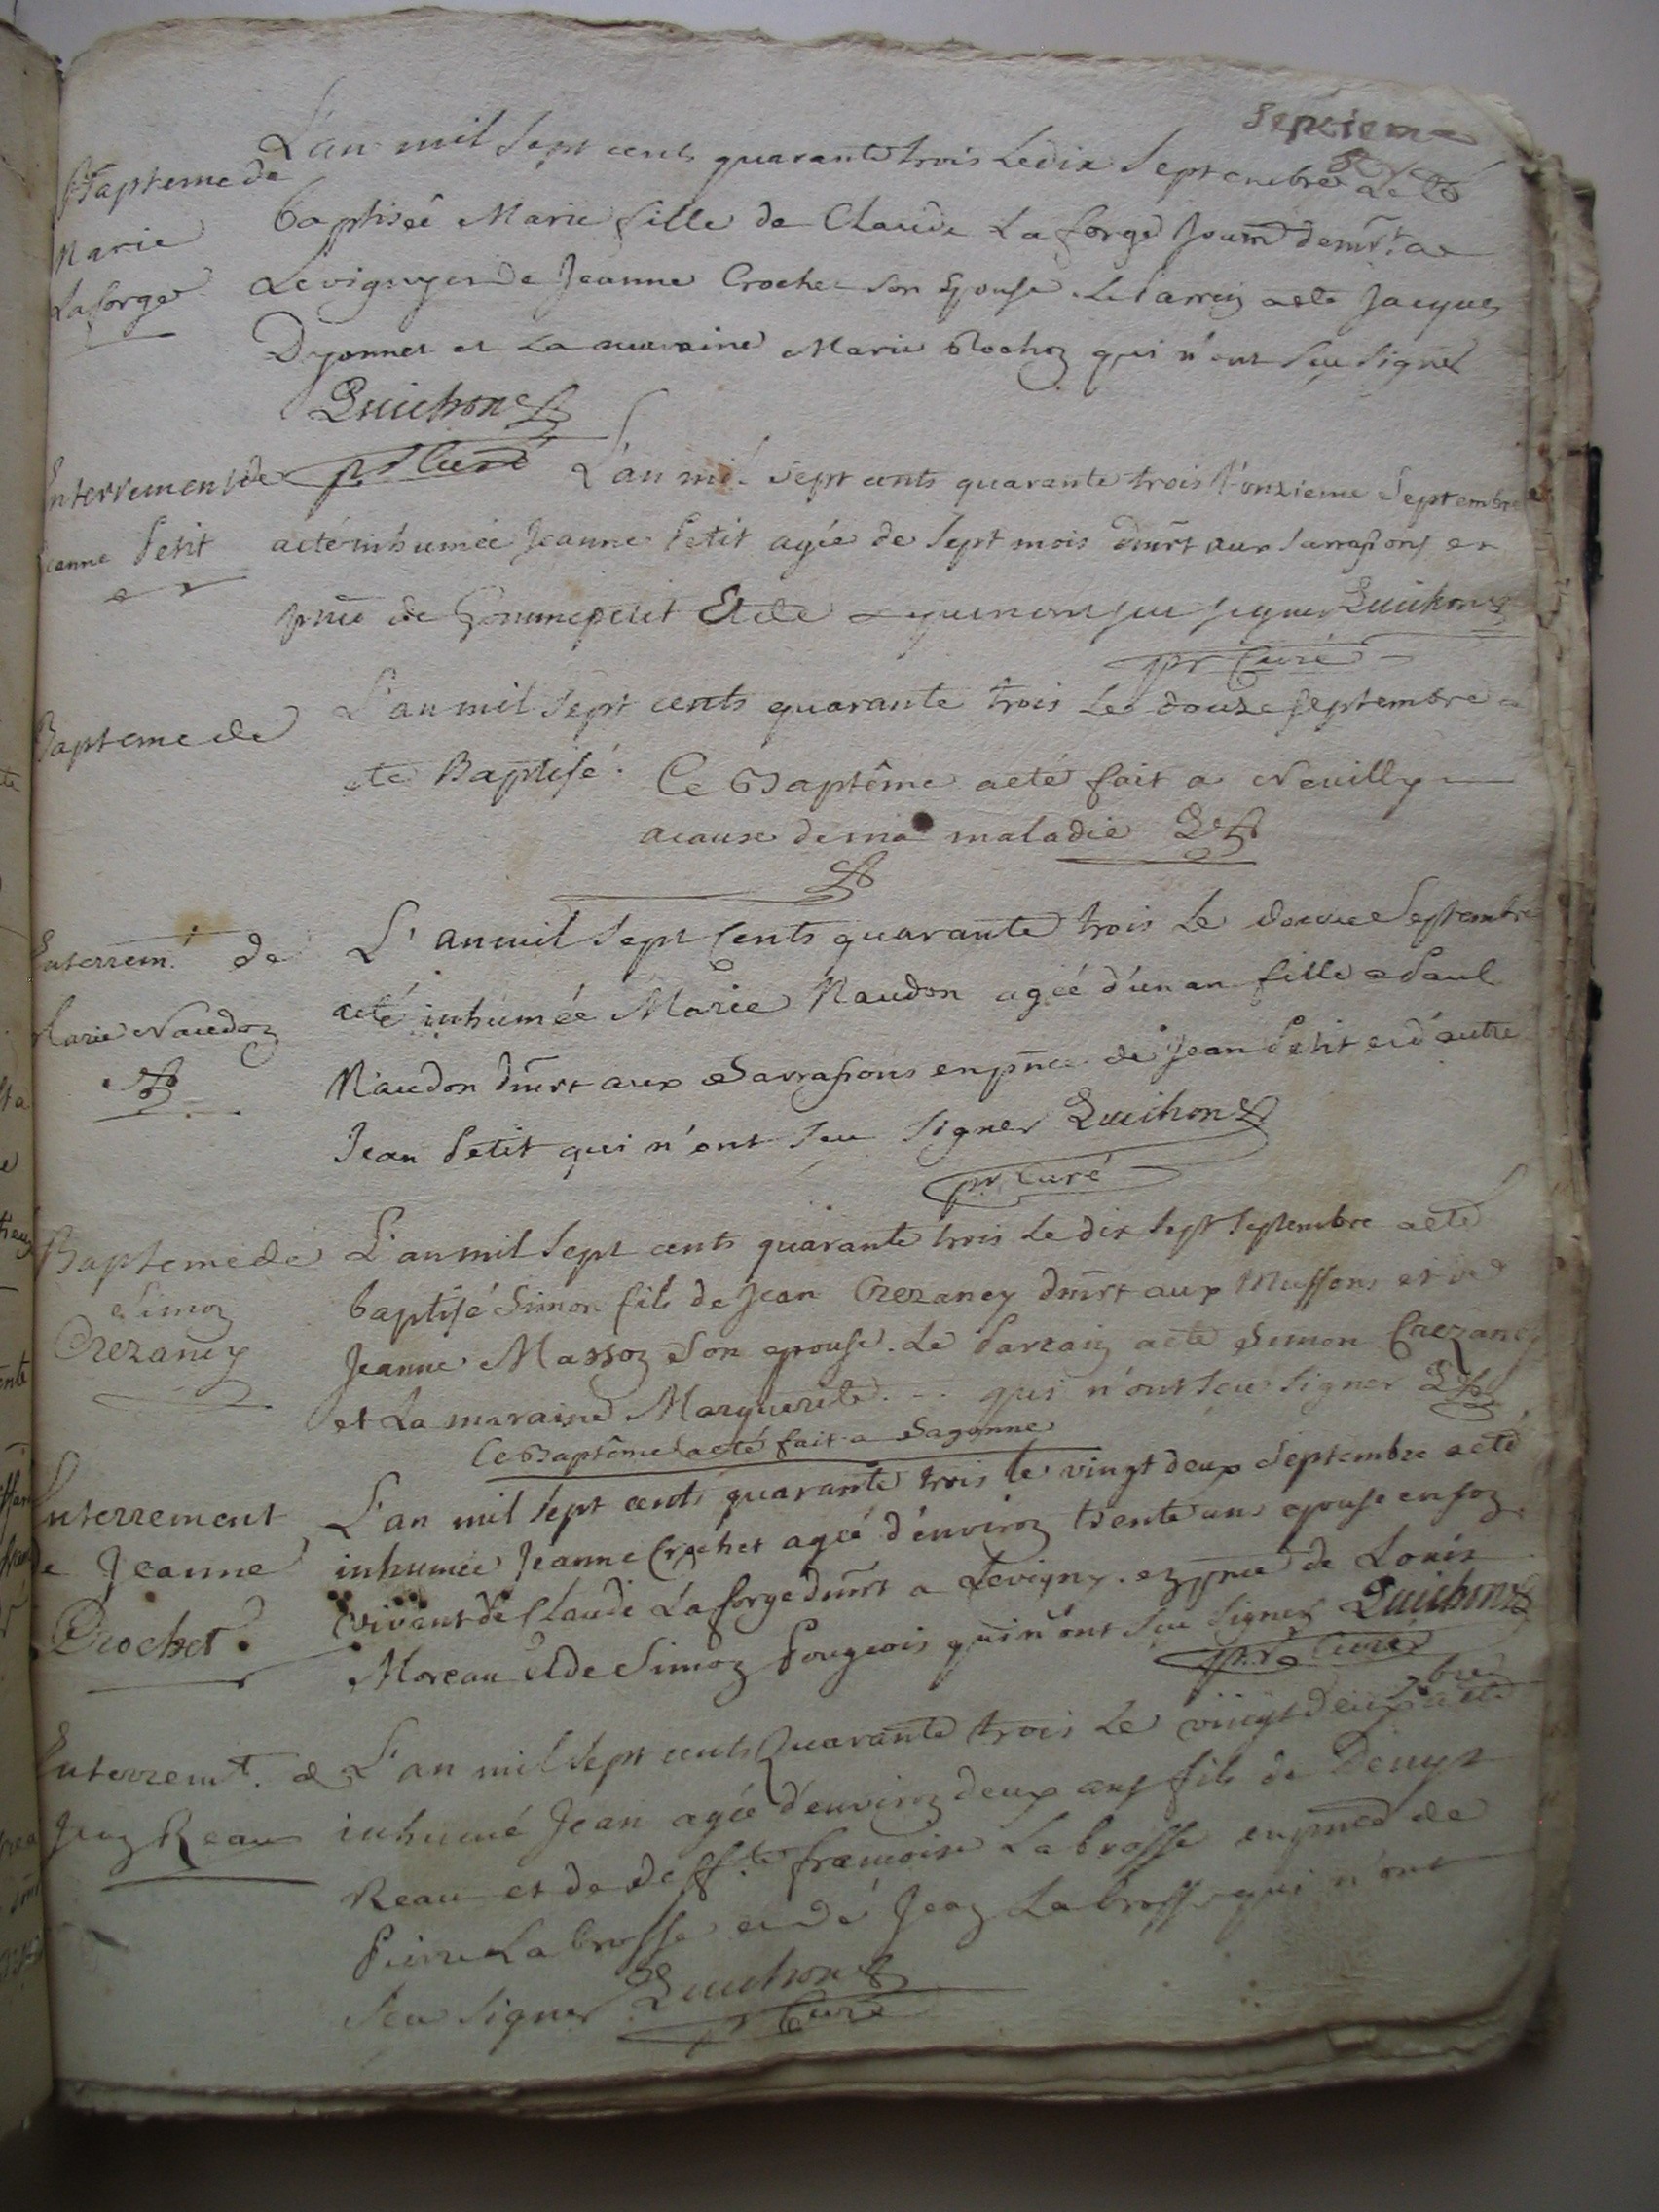 Septieme
Bapteme de
Marie
Laforge
L'an mil Sept cents quarante trois Le dix Septembre a Eté
baptiseé Marie fille de Claude Laforge Journ demrt a
Levigny et de Jeanne Crochet Son Epouse Le Parrein aeté Jacques
Dyonnet et La maraine Marie qui n'ont Seu Signer
Quichon
pr Curé
Enterrement de
Jeanne Petit
L'an mil Sept cents quarante trois l'onzieme Septembre
aeté inhumeé Jeanne Petit ageé de Sept mois dmrt aux Sarrasions en
pnce de Et de qui n'ont Seu Signer Quichon
pr Curé
Bapteme de
L'an mil Sept cents quarante trois Le douze Septembre a
ete Baptisé. Ce Baptême aeté fait a Neuilly
acause de ma maladie Q
Enterrem.t de
Marie Naudon
L'an mil Sept Cents quarante trois Le douze Septembre
aeté inhumeé Marie Naudon ageé d'un an fille de Paul
Naudon dmrt aux Sarrasions en pnce de Jean Petit et d'autre
Jean Petit qui n'ont Seu Signer Quichon
pr Curé
Bapteme de
Simon
Crezancy
L'an mil Sept cents quarante trois Le dix Sept Septembre aeté
baptisé Simon fils de Jean Crezancy dmrt aux Mussons et de
Jeanne Masson Son epouse. Le Parrain aeté Simon Crezancy
et La maraine Marguerite ... qui n'ont Seu Signer Q
Ce Baptême aeté fait a Sagonne
Enterrement
de Jeanne
Crochet.
L'an mil Sept cents quarante trois le vingt deux Septembre aeté
inhumeé Jeanne Crochet ageé d'environ trente ans epouse en son
vivant de Claude Laforge dmrt a Levigny. en pnce de Louis
Moreau et de Simon Fougeois qui n'ont Seu Signer Quichon
pr Curé
Enterremt. de
Jean Reau
L'an mil Sept cents Quarante trois Le vingt deux 7bre aeté
inhumé Jean ageé d'environ deux ans fils de Denys
Reau et de deff.te francoise Labrosse en pnce de
Pierre Labrosse et de Jean Labrosse qui n'ont
Seu Signer Quichon
pr Curé